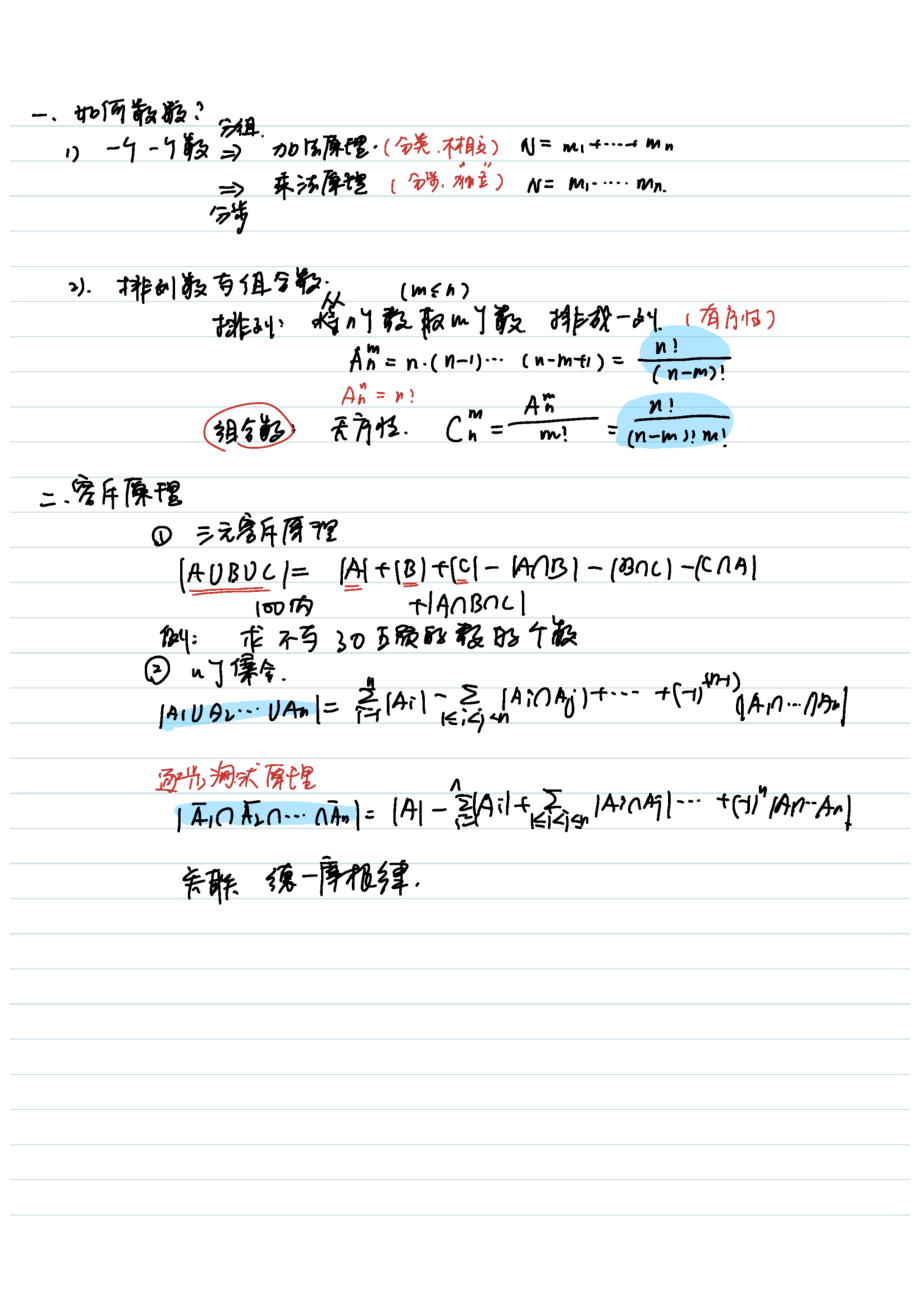 一、如何数数?
分组
1) 一个一个数 ⇒ 加法原理.(分类.不相交) N= m₁+⋯+mₙ
⇒ 乘法原理 (分步."独立") N= m₁·⋯·mₙ.
分步
2). 排列数与组合数. (m≤n)
从
排列: n个数取m个数 排成一列. (有序性)
Aₙᵐ = n·(n-1)⋯(n-m+1) = n!/(n-m)!
Aₙⁿ = n!
组合数: 无序性. Cₙᵐ = Aₙᵐ/m! = n!/((n-m)! m!)
二、容斥原理
① 三元容斥原理
|A∪B∪C| = |A|+|B|+|C|-|A∩B|-|B∩C|-|C∩A|
100内 +|A∩B∩C|
例: 求不与30互质的数的个数
② n个集合.
|A₁∪A₂⋯∪Aₙ| = ∑ⁿᵢ₌₁|Aᵢ| - ∑₁≤ᵢ<ⱼ≤ₙ|Aᵢ∩Aⱼ|+⋯+(-1)⁽ⁿ⁻¹⁾|A₁∩⋯∩Aₙ|
逐步淘汰原理
|Ā₁∩Ā₂∩⋯∩Āₙ| = |A| - ∑ⁿᵢ₌₁|Aᵢ|+∑₁≤ᵢ<ⱼ≤ₙ|Aᵢ∩Aⱼ|⋯+(-1)ⁿ|A₁∩⋯Aₙ|
关联 德一摩根律.